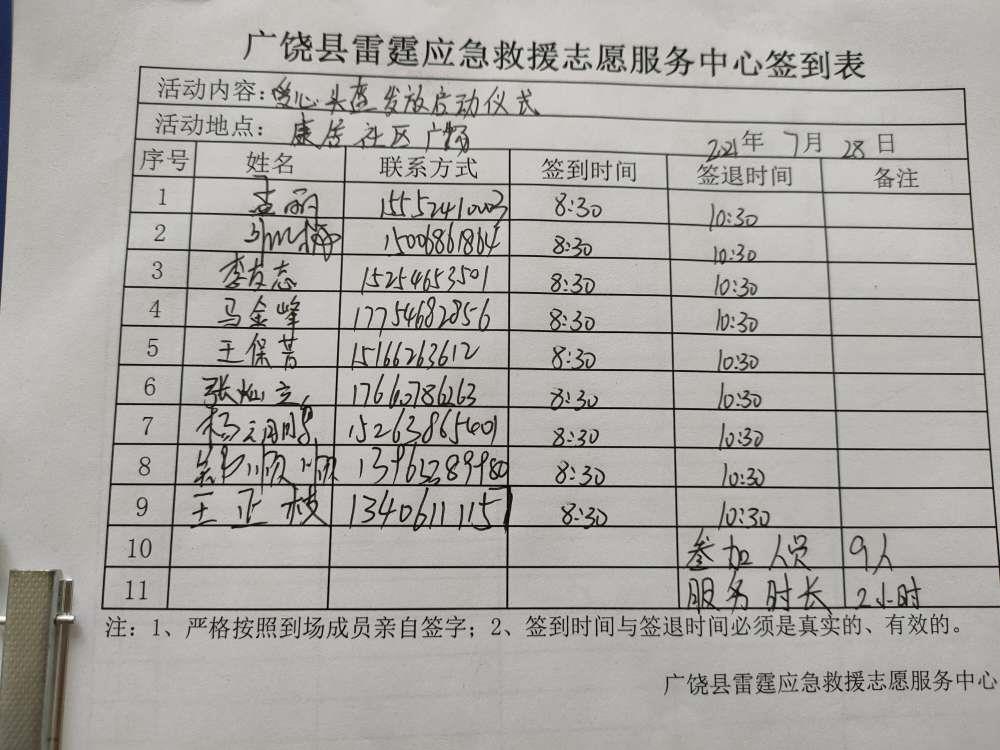 广饶县雷霆应急救援志愿服务中心签到表
活动内容：爱心头盔发放启动仪式
活动地点：康居社区广场 2021年 7月 28日
序号 姓名 联系方式 签到时间 签退时间 备注
1 孟丽 15552410003 8:30 10:30
2 15006861864 8:30 10:30
3 李友志 15254653501 8:30 10:30
4 马金峰 17754682856 8:30 10:30
5 王保苦 15166263612 8:30 10:30
6 张灿立 17660786263 8:30 10:30
7 杨云鹏 15263865401 8:30 10:30
8 13963289980 8:30 10:30
9 王正枝 13406111157 8:30 10:30
10 参加人员 9人
11 服务时长 2小时
注：1、严格按照到场成员亲自签字；2、签到时间与签退时间必须是真实的、有效的。
广饶县雷霆应急救援志愿服务中心